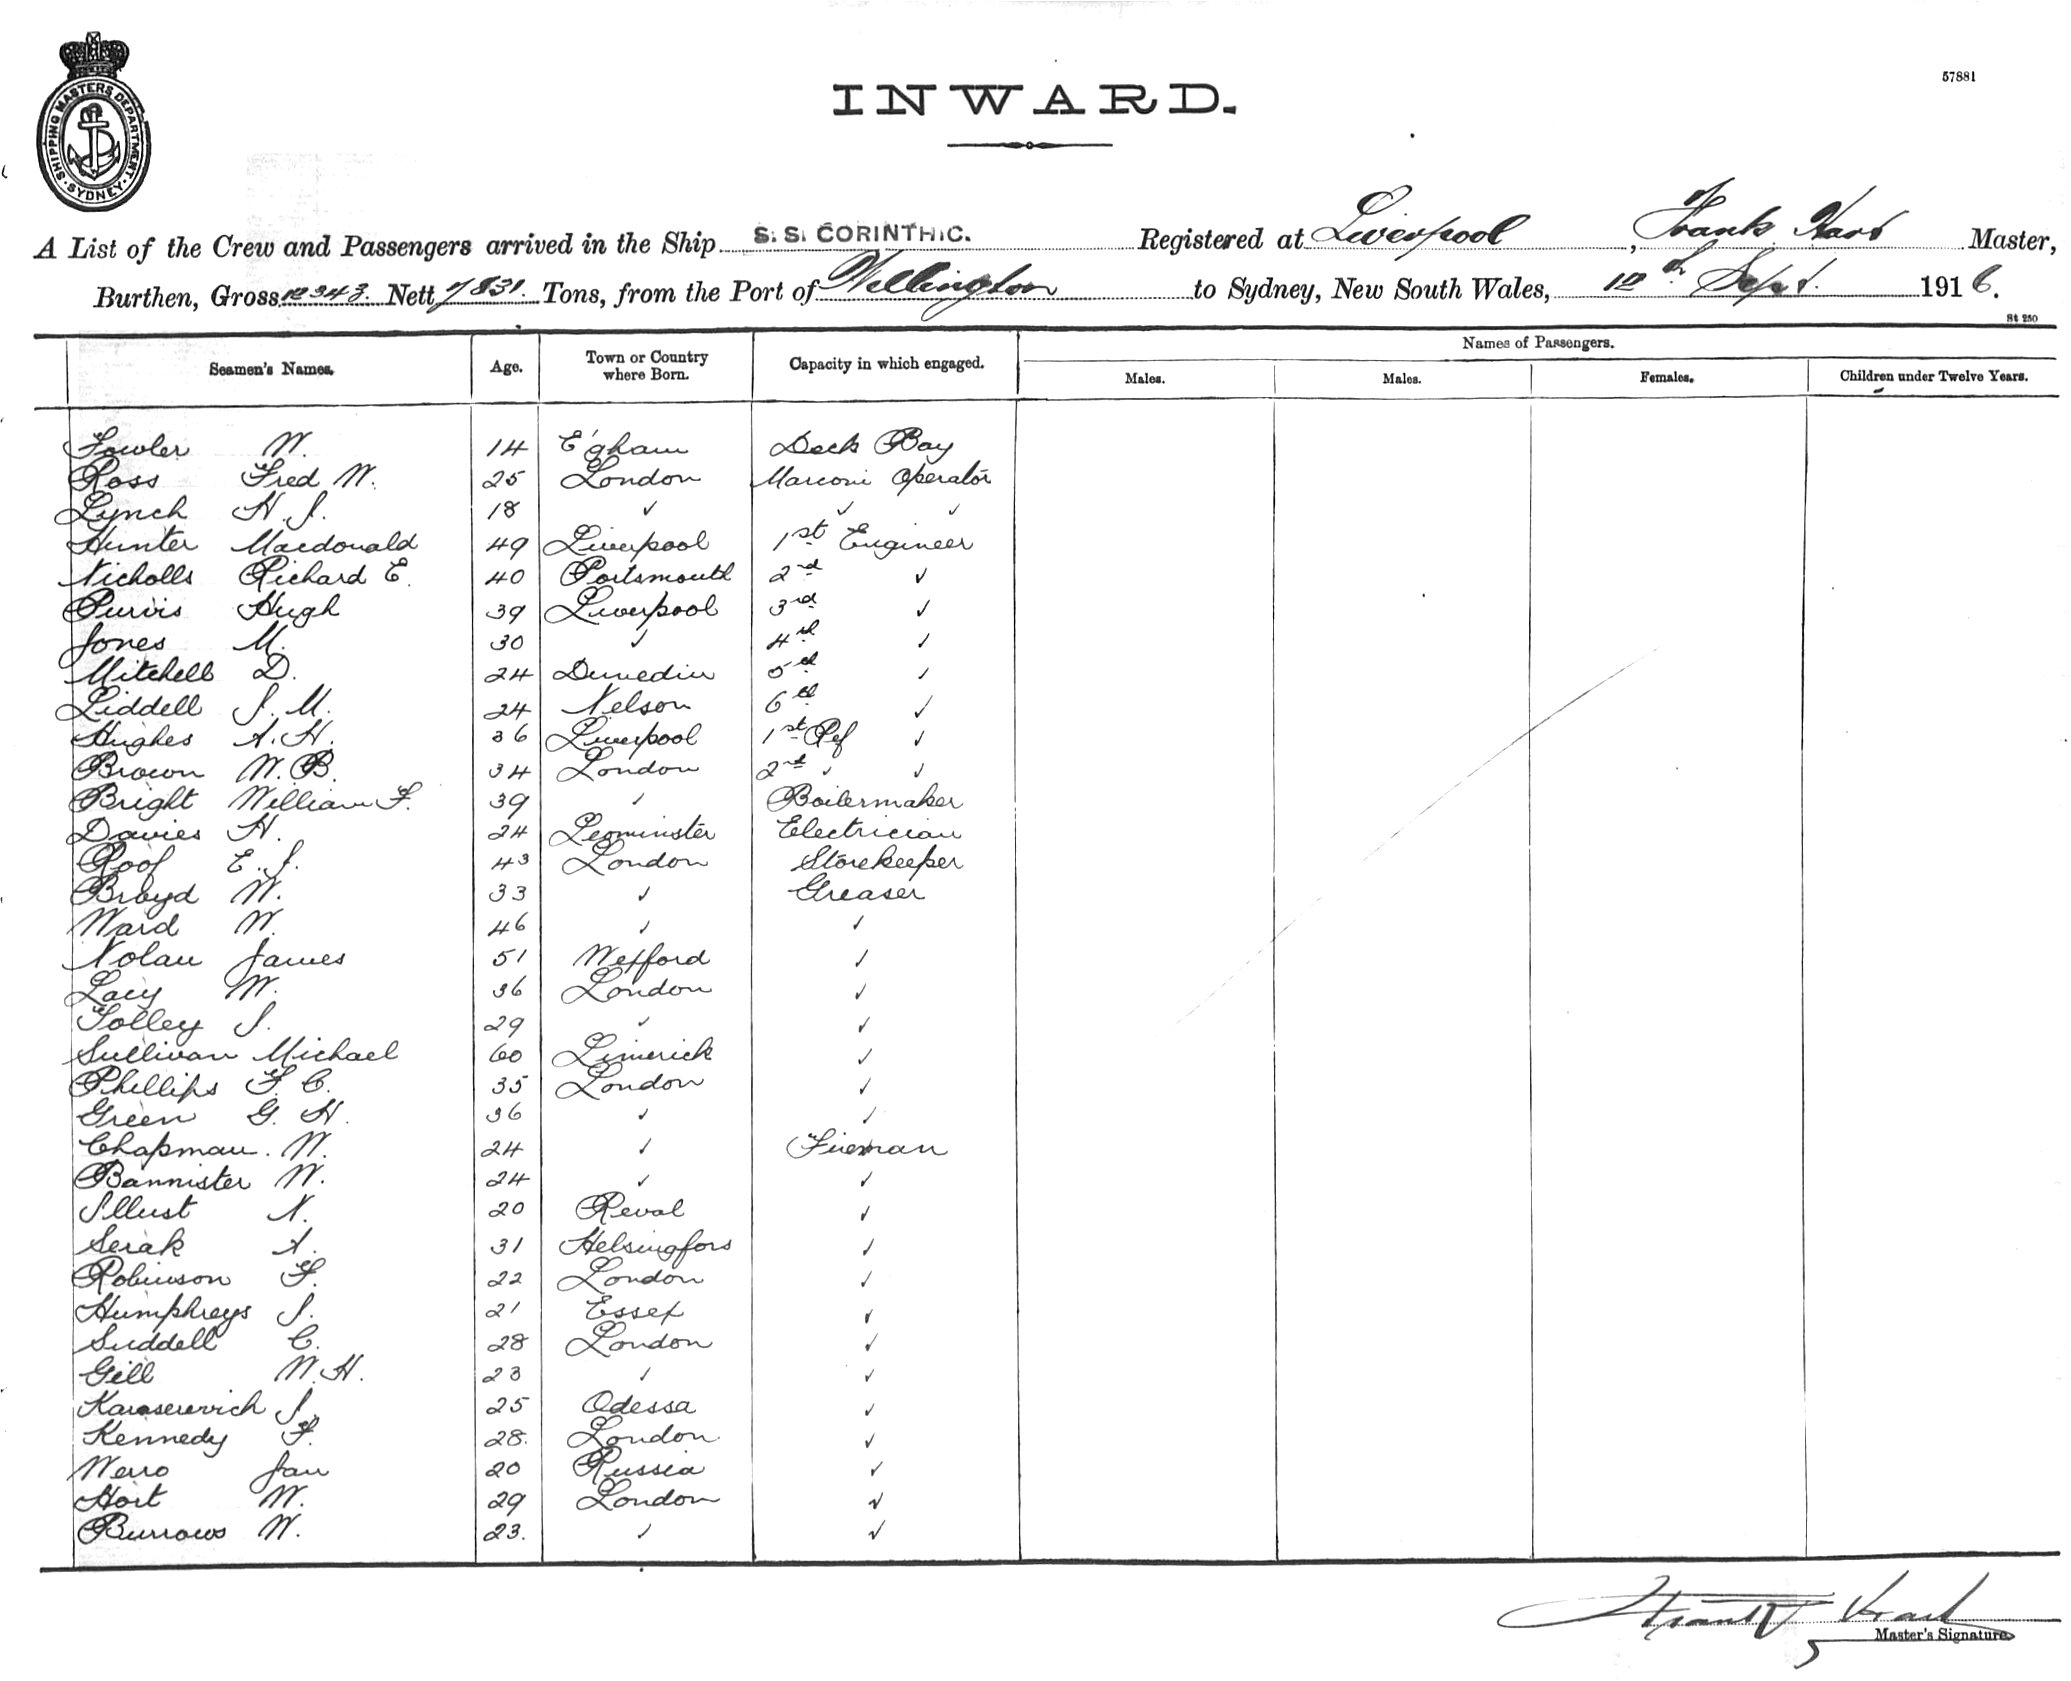 SHIPPING MASTERS DEPARTMENT
SYDNEY
57881
INWARD.
A List of the Crew and Passengers arrived in the Ship S.S. CORINTHIC. Registered at Liverpool, Frank Hart Master,
Burthen, Gross 12343 Nett 7831. Tons, from the Port of Wellington to Sydney, New South Wales, Sept. 1916.
St 250
Seamen's Names. Age. Town or Country where Born. Capacity in which engaged. Names of Passengers.
Males. Males. Females. Children under Twelve Years.
Fowler W. 14 E'gham Deck Boy
Ross Fred W. 25 London Marconi Operator
Lynch H. J. 18 ✓ ✓ ✓
Hunter Macdonald 49 Liverpool 1st Engineer
Nicholls Richard E. 40 Portsmouth 2nd ✓
Purvis Hugh 39 Liverpool 3rd ✓
Jones M. 30 ✓ 4th ✓
Mitchell D. 24 Dunedin 5th ✓
Liddell J. M. 24 Nelson 6th ✓
Hughes A. H. 36 Liverpool 1st Ref ✓
Brown W. B. 34 London 2nd ✓ ✓
Bright William F. 39 ✓ Boilermaker
Davies H. 24 Leominster Electrician
Roof E. J. 43 London Storekeeper
Broyd W. 33 ✓ Greaser
Ward W. 46 ✓ ✓
Nolan James 51 Wexford ✓
Lacy W. 36 London ✓
Tolley J. 29 ✓ ✓
Sullivan Michael 60 Limerick ✓
Phillips F. C. 35 London ✓
Green G. H. 36 ✓ ✓
Chapman. W. 24 ✓ Fireman
Bannister W. 24 ✓ ✓
Illust N. 20 Reval ✓
Serak A. 31 Helsingfors ✓
Robinson F. 22 London ✓
Humphreys J. 21 Essex ✓
Suddell C. 28 London ✓
Gill W. H. 23 ✓ ✓
J. 25 Odessa ✓
Kennedy F. 28. London ✓
Werro Jan 20 Russia ✓
Hort W. 29 London ✓
Burrows W. 23. ✓ ✓
Frank Hart
Master's Signature